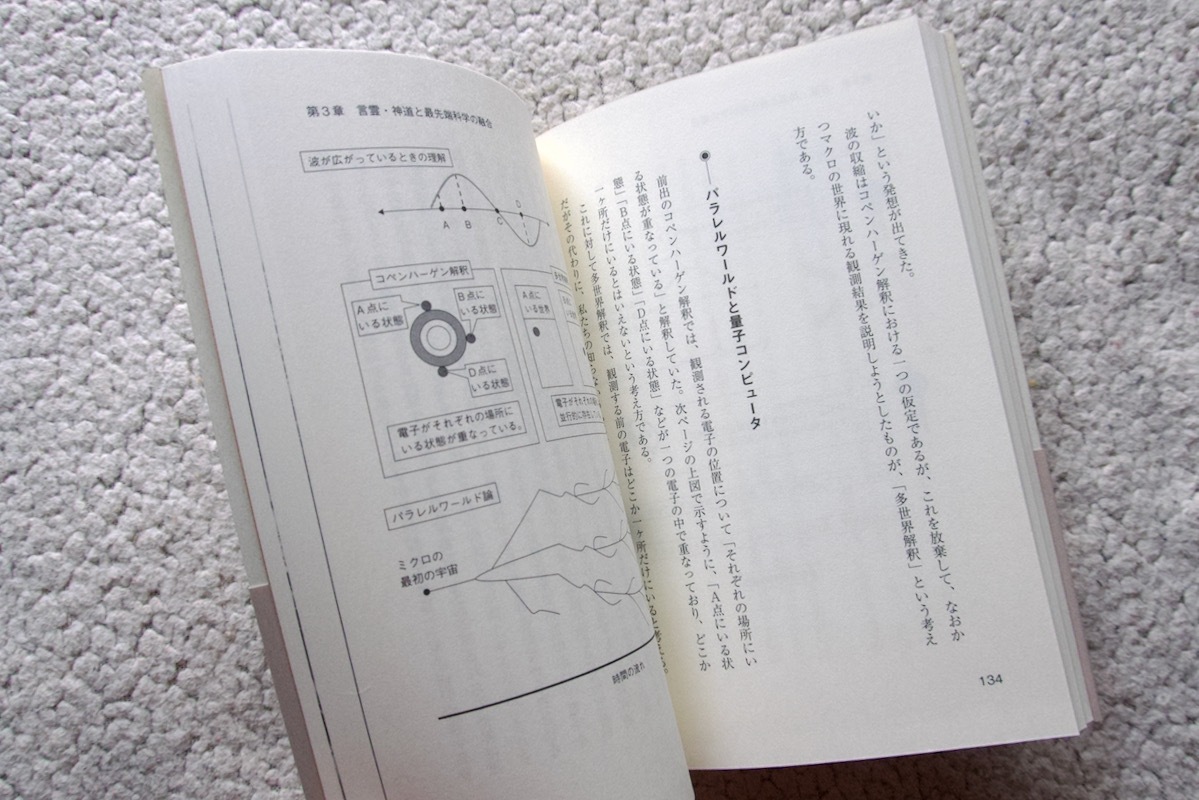 いか」という発想が出てきた。
波の収縮はコペンハーゲン解釈における一つの仮定であるが、これを放棄して、なおか
つマクロの世界に現れる観測結果を説明しようとしたものが、「多世界解釈」という考え
方である。
パラレルワールドと量子コンピュータ
前出のコペンハーゲン解釈では、観測される電子の位置について「それぞれの場所にい
る状態が重なっている」と解釈していた。次ページの上図で示すように、「A点にいる状
態」「B点にいる状態」「D点にいる状態」などが一つの電子の中で重なっており、どこか
一ヶ所だけにいるとはいえないという考え方である。
これに対して多世界解釈では、観測する前の電子はどこか一ヶ所だけにいると考える。
だがその代わりに、私たちの知らない
134
第3章 言霊・神道と最先端科学の融合
波が広がっているときの理解
A
B
C
D
コペンハーゲン解釈
A点に
いる状態
B点に
いる状態
D点に
いる状態
電子がそれぞれの場所に
いる状態が重なっている。
A点に
いる世界
電子がそれぞれの
並行的に存在
パラレルワールド論
ミクロの
最初の宇宙
時間の流れ